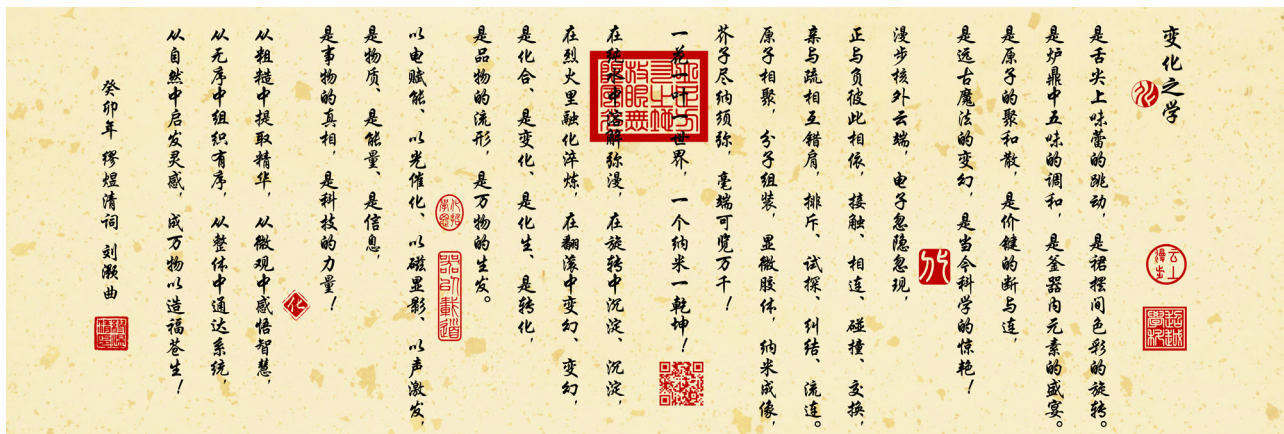 变化之学
是舌尖上味蕾的跳动，是裙摆间色彩的旋转。
是炉鼎中五味的调和，是釜器内元素的盛宴。
是原子的聚和散，是价键的断与连，
是远古魔法的变幻，是当今科学的惊艳！
漫步核外云端，电子忽隐忽现，
正与负彼此相依，接触、相连、碰撞、交换，
亲与疏相互错肩，排斥、试探、纠结、流连。
原子相聚，分子组装，显微胶体，纳米成像，
芥子尽纳须弥，毫端可览万千！
一花一叶一世界，一个纳米一乾坤！
在纯水中溶解弥漫，在旋转中沉淀、沉淀，
在烈火里融化淬炼，在翻滚中变幻、变幻，
是化合、是变化、是化生、是转化，
是品物的流形，是万物的生发。
以电赋能、以光催化、以磁显影、以声激发，
是物质、是能量、是信息，
是事物的真相，是科技的力量！
从粗糙中提取精华，从微观中感悟智慧，
从无序中组织有序，从整体中通达系统，
从自然中启发灵感，成万物以造福苍生！
癸卯年 缪煜清词 刘灏曲
云上漫步
超越学科
器以载道